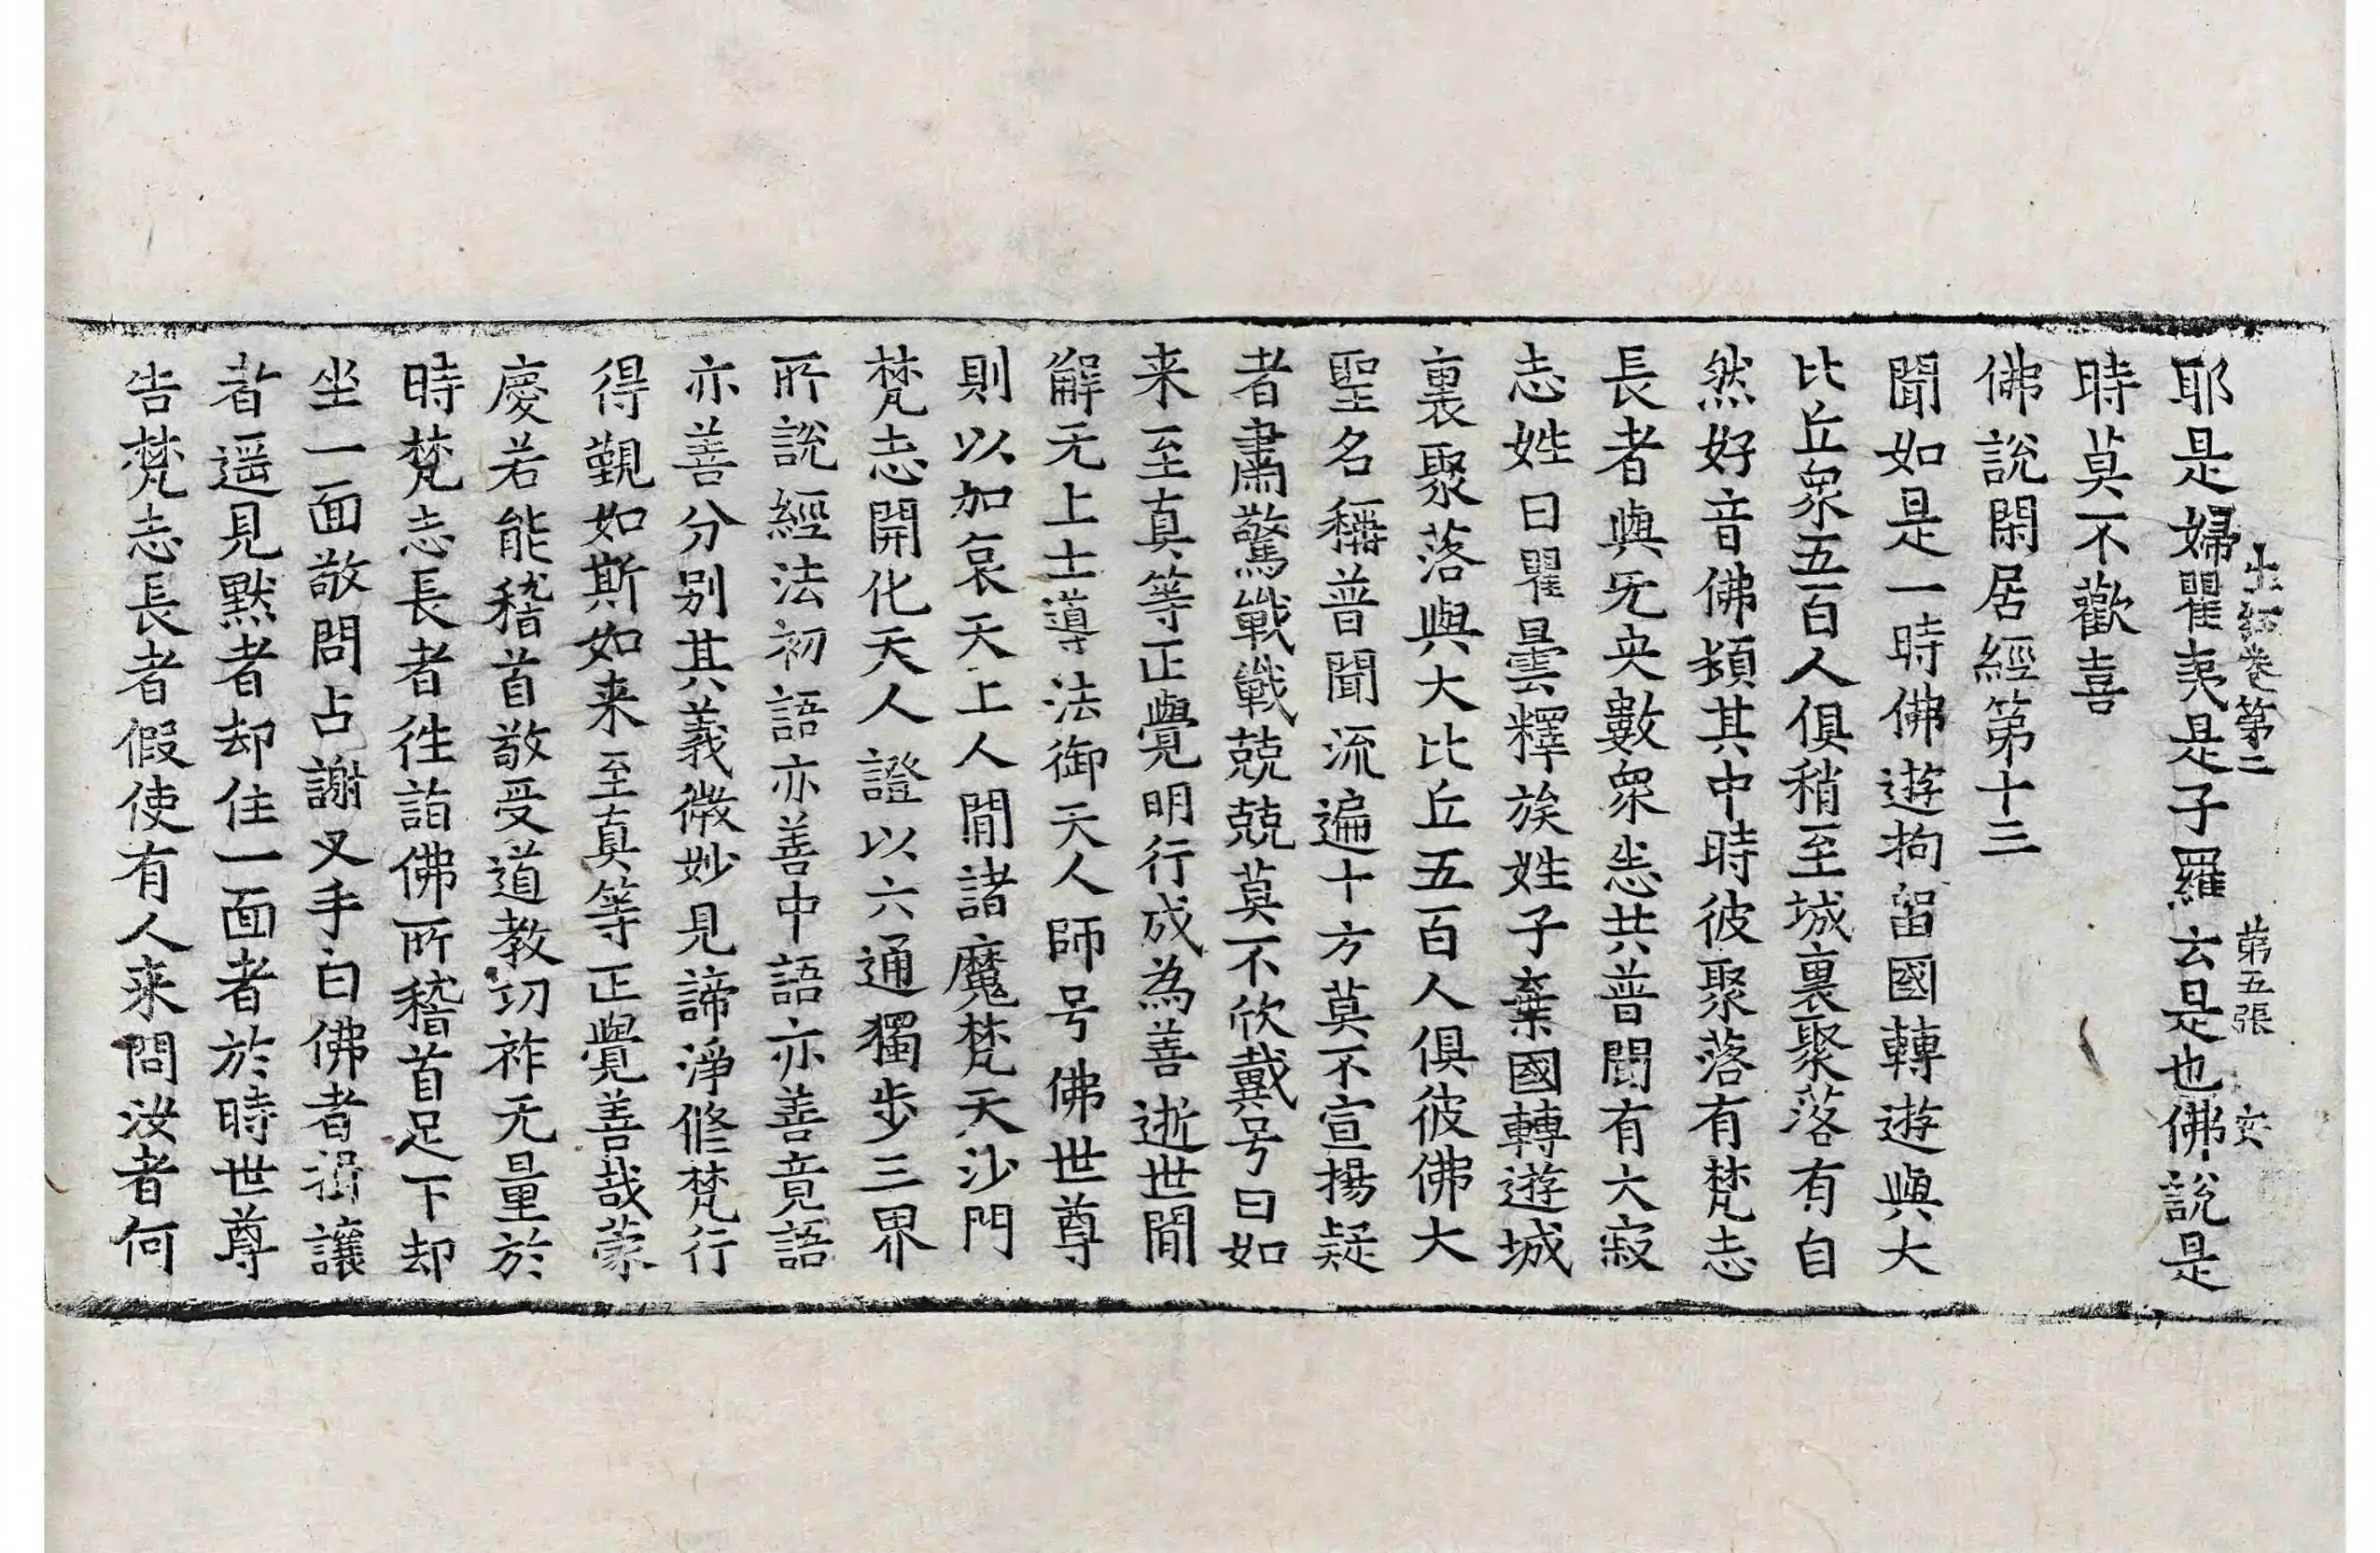 生經卷第二 第五張 安
耶是婦瞿夷是子羅云是也佛說是
時莫不歡喜
佛說閑居經第十三
聞如是一時佛遊拘留國轉遊與大
比丘衆五百人俱稍至城裏聚落有自
然好音佛頞其中時彼聚落有梵志
長者與旡央數衆悉共普聞有大寂
志姓曰瞿曇釋族姓子棄國轉遊城
裏聚落與大比丘五百人俱彼佛大
聖名稱普聞流遍十方莫不宣揚疑
者肅驚戰戰兢兢莫不欣戴号曰如
来至真等正覺明行成為善逝世閒
解无上士導法御天人師号佛世尊
則以加哀天上人閒諸魔梵天沙門
梵志開化天人證以六通獨步三界
所說經法初語亦善中語亦善竟語
亦善分別其義微妙見諦淨修梵行
得觐如斯如来至真等正覺善哉蒙
慶若能稽首敬受道教功祚无量於
時梵志長者往詣佛所稽首足下却
坐一面敬問占謝叉手白佛者揖讓
者遥見默者却住一面者於時世尊
告梵志長者假使有人来問汝者何